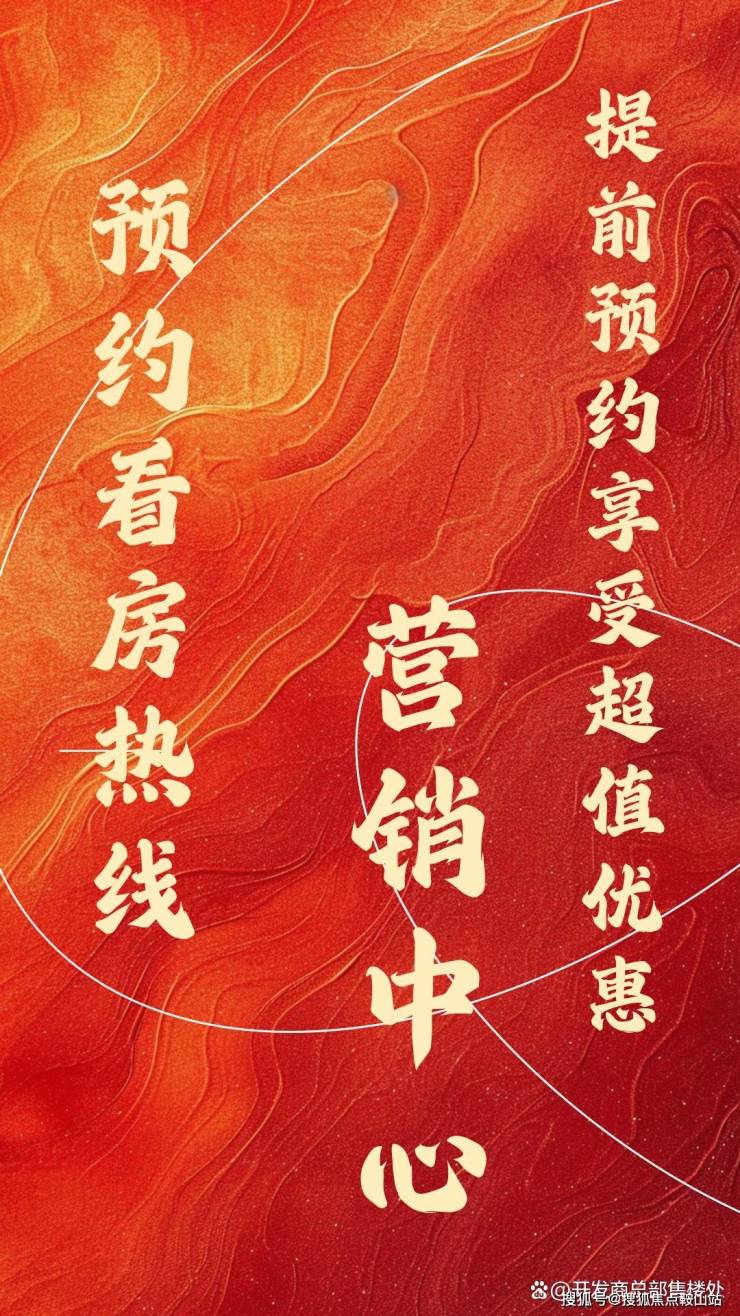 提前预约享受超值优惠
营销中心
预约看房热线
@开发商总部售楼处
搜狐号@搜狐焦点鞍山站